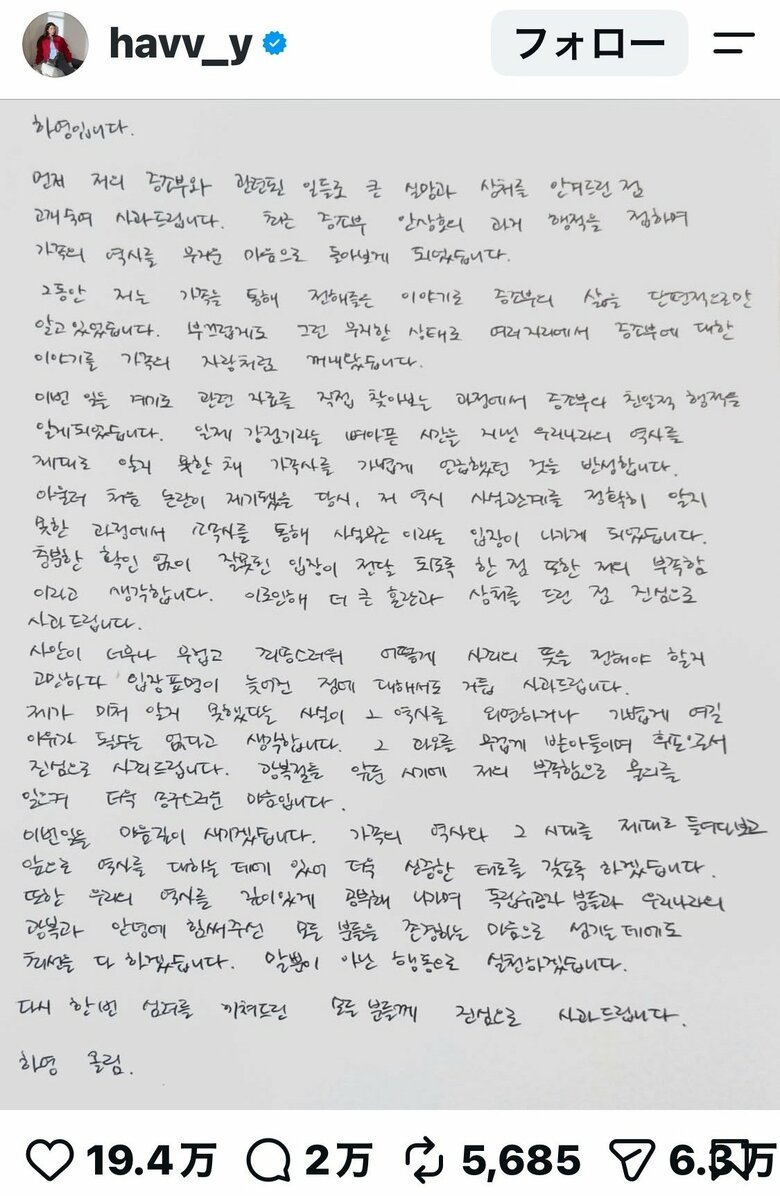 havv_y
フォロー
하영입니다.
먼저 저의 증조부와 관련된 일들로 큰 실망과 상처를 안겨드린 점
고개숙여 사과드립니다. 최근 증조부 안상호의 과거 행적을 접하며
가족의 역사를 무거운 마음으로 돌아보게 되었습니다.
그동안 저는 가족을 통해 전해들은 이야기로 증조부의 삶을 단편적으로만
알고 있었습니다. 부끄럽게도 그런 무지한 상태로 여러자리에서 증조부에 대한
이야기를 가족의 자랑처럼 꺼내왔습니다.
이번 일을 계기로 관련 자료를 직접 찾아보는 과정에서 증조부의 친일적 행적을
알게되었습니다. 일제 강점기라는 뼈아픈 시간을 지낸 우리나라의 역사를
제대로 알지 못한 채 가족사를 가볍게 언급했던 것을 반성합니다.
아울러 처음 논란이 제기됐을 당시, 저 역시 사실관계를 정확히 알지
못한 과정에서 소속사를 통해 사실무근 이라는 입장이 나가게 되었습니다.
충분한 확인 없이 잘못된 입장이 전달 되도록 한 점 또한 저의 부족함
이라고 생각합니다. 이로인해 더 큰 혼란과 상처를 드린 점 진심으로
사과드립니다.
사안이 너무나 무겁고 죄송스러워 어떻게 사죄의 뜻을 전해야 할지
고민하다 입장표명이 늦어진 점에 대해서도 거듭 사과드립니다.
제가 미처 알지 못했다는 사실이 그 역사를 외면하거나 가볍게 여길
이유가 될수는 없다고 생각합니다. 그 과오를 무겁게 받아들이며 후손으로서
진심으로 사죄드립니다. 광복절을 앞둔 시기에 저의 부족함으로 물의를
일으켜 더욱 송구스러운 마음입니다.
이번일을 마음깊이 새기겠습니다. 가족의 역사와 그 시대를 제대로 들여다보고
앞으로 역사를 대하는 데에 있어 더욱 신중한 태도를 갖도록 하겠습니다.
또한 우리의 역사를 깊이있게 공부해 나가며 독립유공자 분들과 우리나라의
광복과 안녕에 힘써주신 모든 분들을 존경하는 마음으로 섬기는데에도
최선을 다 하겠습니다. 말뿐이 아닌 행동으로 실천하겠습니다.
다시 한번 심려를 끼쳐드린 모든 분들께 진심으로 사과드립니다.
하영 올림.
19.4万 2万 5,685 6.3万